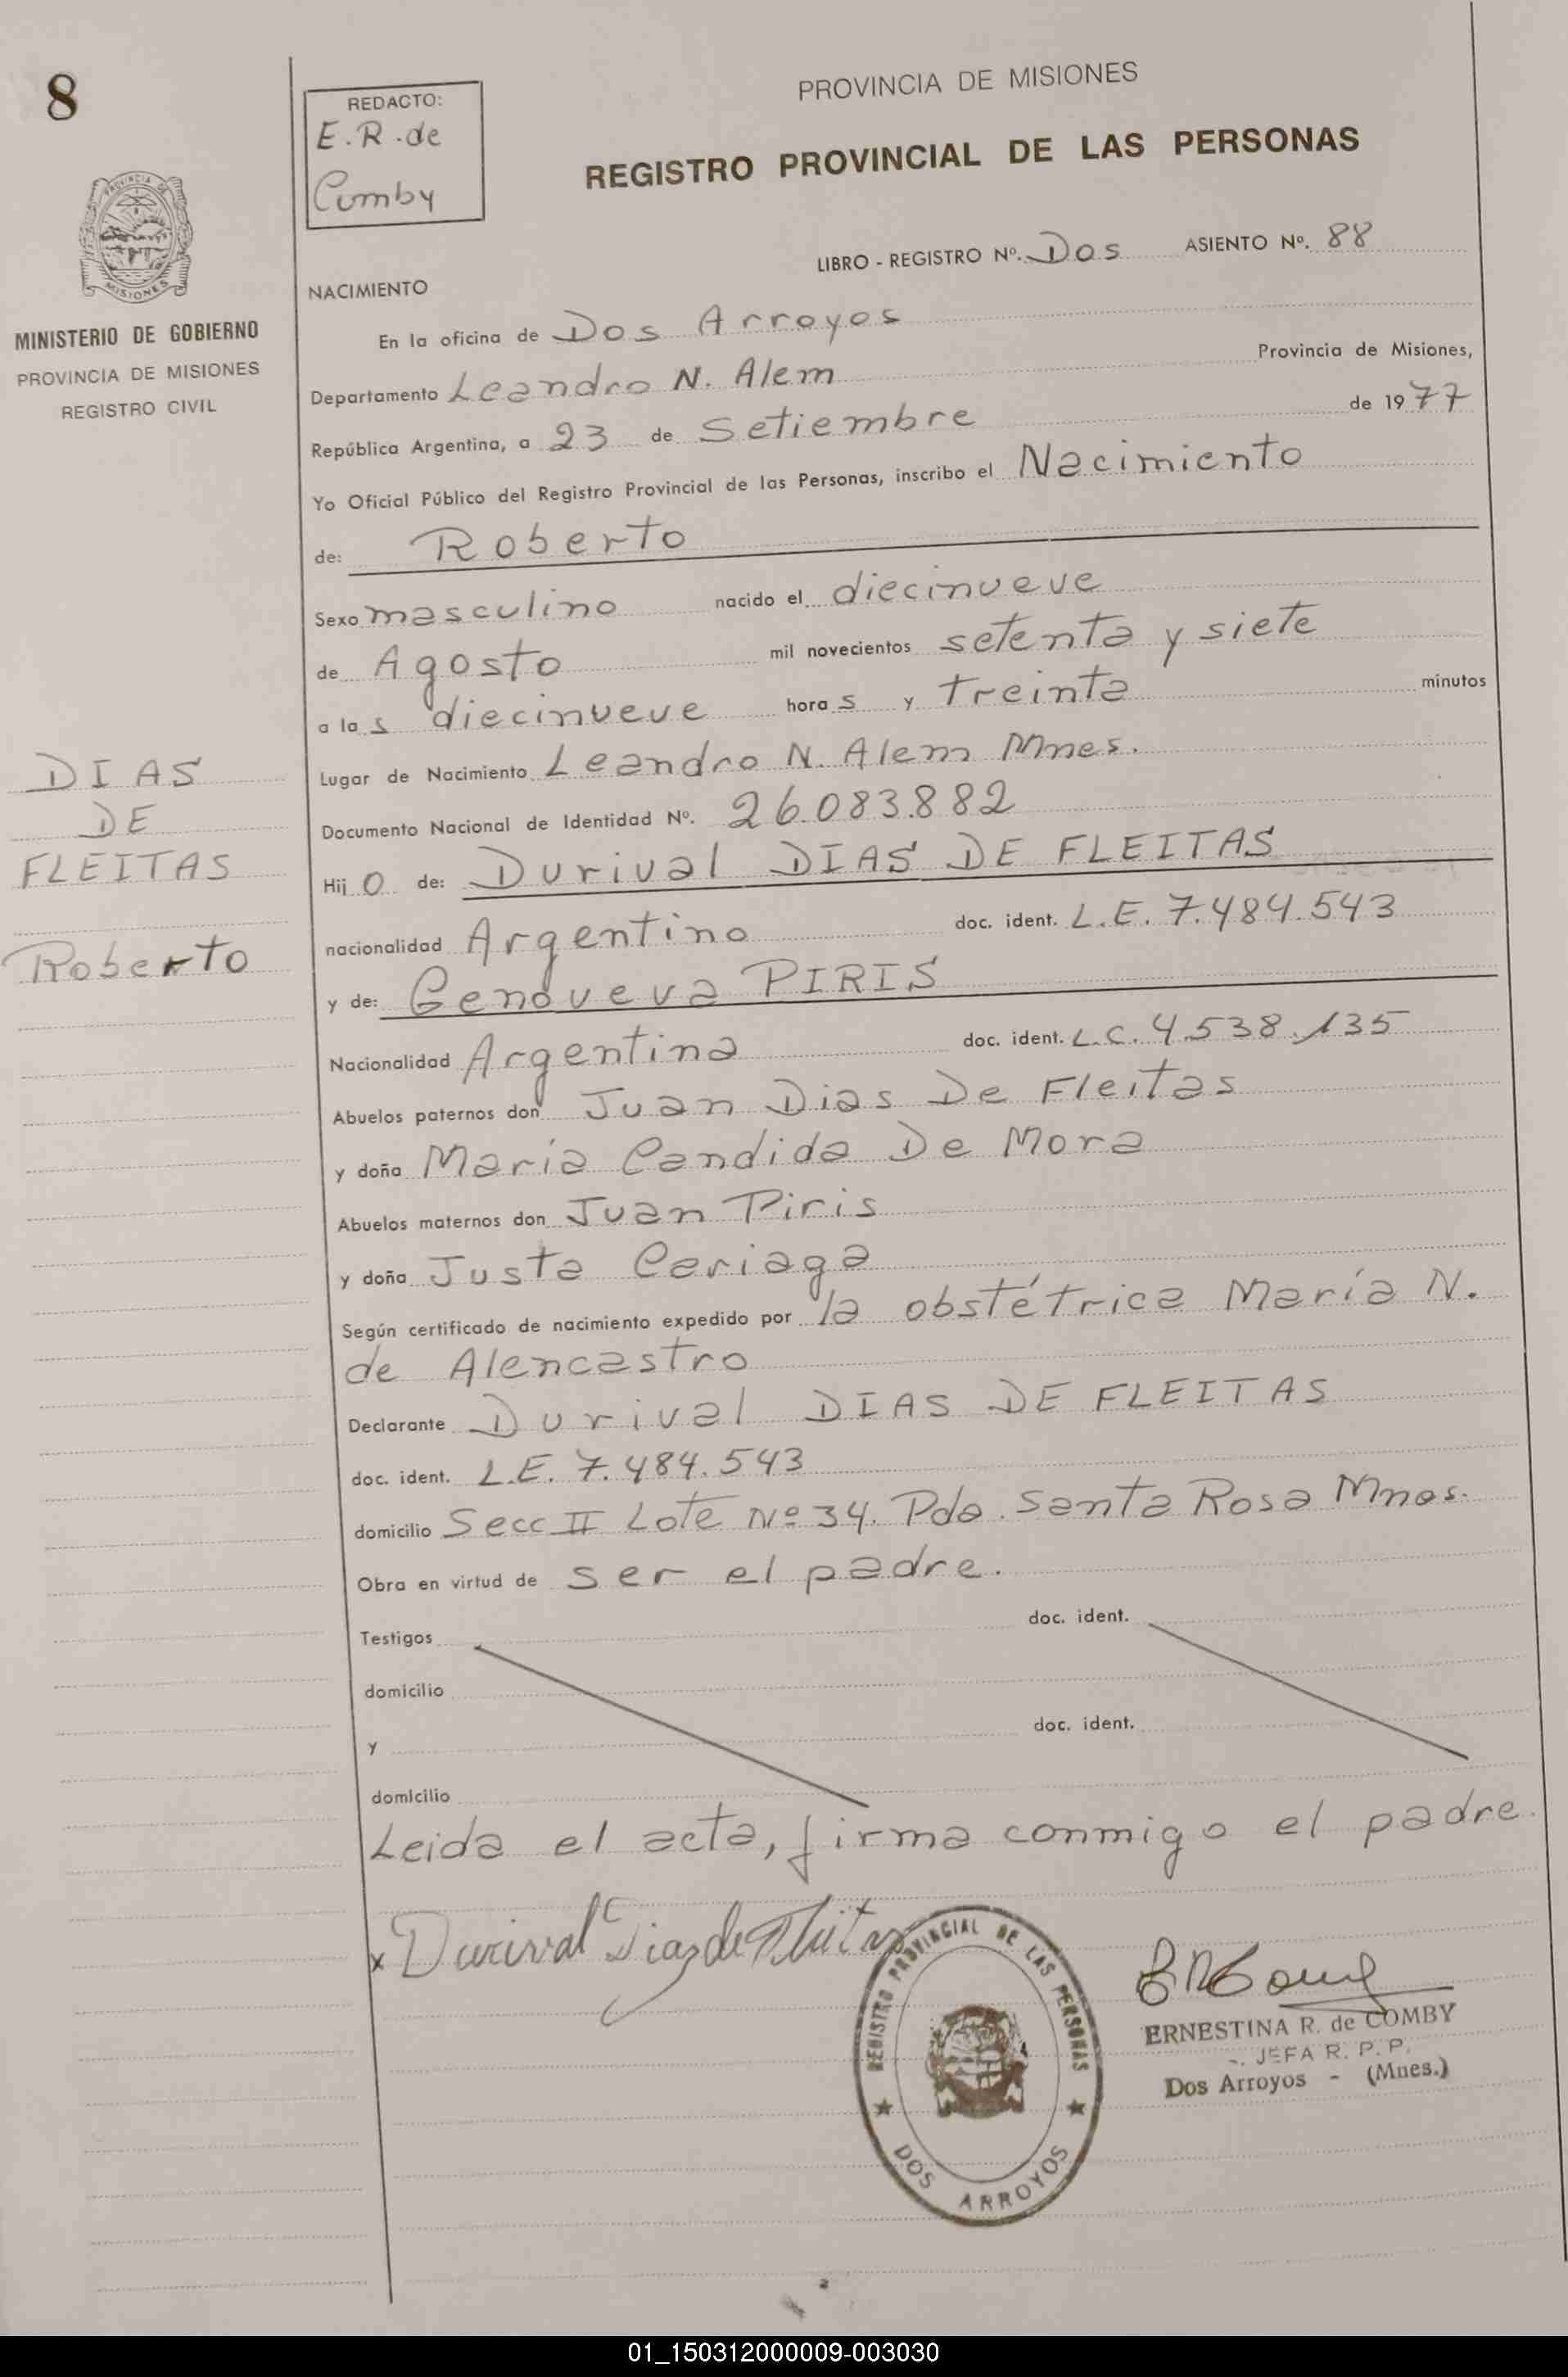 8
REDACTO:
E. R. de
Comby
PROVINCIA DE MISIONES
REGISTRO PROVINCIAL DE LAS PERSONAS
PROVINCIA DE
MISIONES
MINISTERIO DE GOBIERNO
PROVINCIA DE MISIONES
REGISTRO CIVIL
LIBRO - REGISTRO Nº. Dos ASIENTO Nº. 88
NACIMIENTO
En la oficina de Dos Arroyos
Departamento Leandro N. Alem Provincia de Misiones,
República Argentina, a 23 de Setiembre de 1977
Yo Oficial Público del Registro Provincial de las Personas, inscribo el Nacimiento
de: Roberto
Sexo masculino nacido el diecinueve
de Agosto mil novecientos setenta y siete
a las diecinueve horas y treinta minutos
Lugar de Nacimiento Leandro N. Alem Mnes.
Documento Nacional de Identidad Nº. 26.083.882
Hijo de: Durival DIAS DE FLEITAS
nacionalidad Argentino doc. ident. L.E. 7.484.543
y de: Genoveva PIRIS
Nacionalidad Argentina doc. ident. L.C. 4.538.135
Abuelos paternos don Juan Dias De Fleitas
y doña María Candida De Mora
Abuelos maternos don Juan Piris
y doña Justa Cariaga
Según certificado de nacimiento expedido por la obstétrica María N.
de Alencastro
Declarante Durival DIAS DE FLEITAS
doc. ident. L.E. 7.484.543
domicilio Secc II Lote Nº 34. Pda. Santa Rosa Mnes.
Obra en virtud de ser el padre.
Testigos doc. ident.
domicilio
y doc. ident.
domicilio
Leida el acta, firma conmigo el padre.
DIAS
DE
FLEITAS
Roberto
x Durival Diaz de Fleitas
REGISTRO PROVINCIAL DE LAS PERSONAS
DOS ARROYOS
ERNESTINA R. de COMBY
JEFA R. P. P.
Dos Arroyos - (Mnes.)
01_150312000009-003030